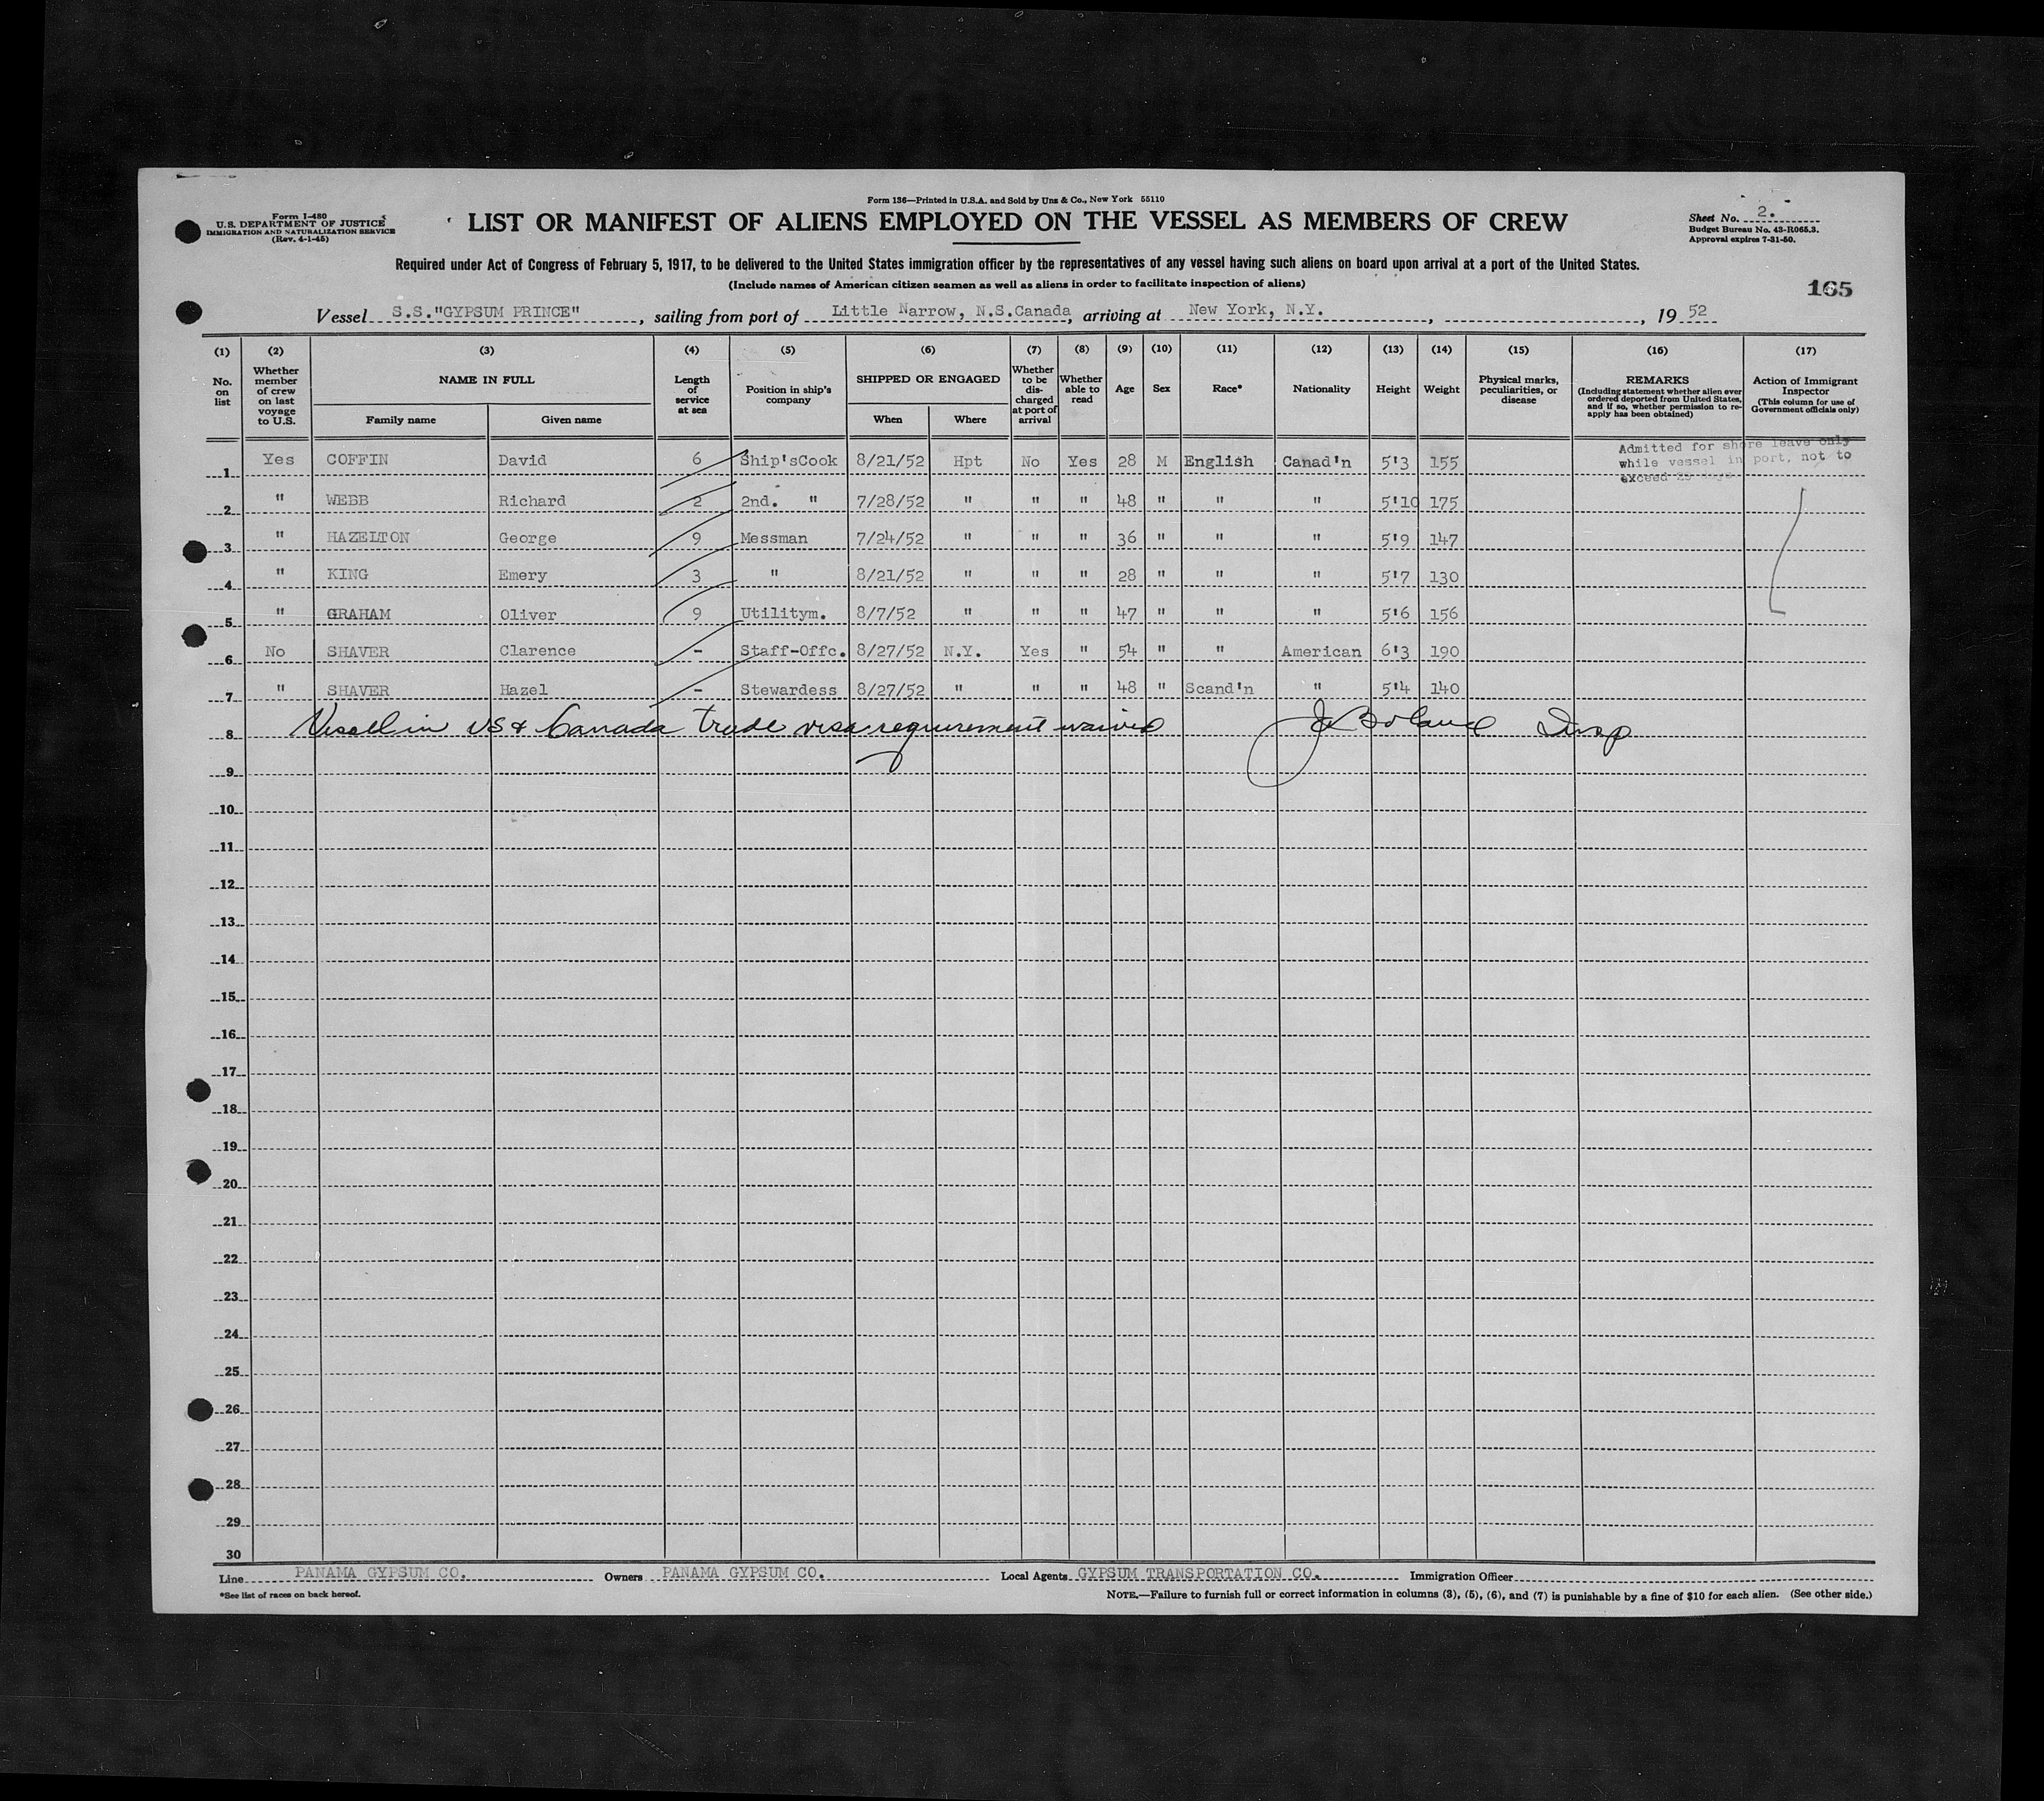 Form 136—Printed in U.S.A. and Sold by Unz & Co., New York 55110
Form I-480
U.S. DEPARTMENT OF JUSTICE
IMMIGRATION AND NATURALIZATION SERVICE
(Rev. 4-1-45)
LIST OR MANIFEST OF ALIENS EMPLOYED ON THE VESSEL AS MEMBERS OF CREW
Sheet No. 2.
Budget Bureau No. 43-R065.3.
Approval expires 7-31-50.
Required under Act of Congress of February 5, 1917, to be delivered to the United States immigration officer by the representatives of any vessel having such aliens on board upon arrival at a port of the United States.
(Include names of American citizen seamen as well as aliens in order to facilitate inspection of aliens)
165
Vessel S.S."GYPSUM PRINCE", sailing from port of Little Narrow, N.S.Canada, arriving at New York, N.Y., , 19 52
(1) (2) (3) (4) (5) (6) (7) (8) (9) (10) (11) (12) (13) (14) (15) (16) (17)
No. on list
Whether member of crew on last voyage to U.S.
NAME IN FULL
Family name Given name
Length of service at sea
Position in ship's company
SHIPPED OR ENGAGED
When Where
Whether to be discharged at port of arrival
Whether able to read
Age
Sex
Race*
Nationality
Height
Weight
Physical marks, peculiarities, or disease
REMARKS
(Including statement whether alien ever ordered deported from United States, and if so, whether permission to re-apply has been obtained)
Action of Immigrant Inspector
(This column for use of Government officials only)
1 Yes COFFIN David 6 Ship'sCook 8/21/52 Hpt No Yes 28 M English Canad'n 5'3 155
Admitted for shore leave only
while vessel in port, not to
exceed 29 days
2 " WEBB Richard 2 2nd. " 7/28/52 " " " 48 " " " 5'10 175
3 " HAZELTON George 9 Messman 7/24/52 " " " 36 " " " 5'9 147
4 " KING Emery 3 " 8/21/52 " " " 28 " " " 5'7 130
5 " GRAHAM Oliver 9 Utilitym. 8/7/52 " " " 47 " " " 5'6 156
6 No SHAVER Clarence - Staff-Offc. 8/27/52 N.Y. Yes " 54 " " American 6'3 190
7 " SHAVER Hazel - Stewardess 8/27/52 " " " 48 " Scand'n " 5'4 140
8 Vessel in US & Canada trade visa requirement waived Insp
9
10
11
12
13
14
15
16
17
18
19
20
21
22
23
24
25
26
27
28
29
30
Line PANAMA GYPSUM CO. Owners PANAMA GYPSUM CO. Local Agents GYPSUM TRANSPORTATION CO. Immigration Officer
*See list of races on back hereof.
NOTE.—Failure to furnish full or correct information in columns (3), (5), (6), and (7) is punishable by a fine of $10 for each alien. (See other side.)